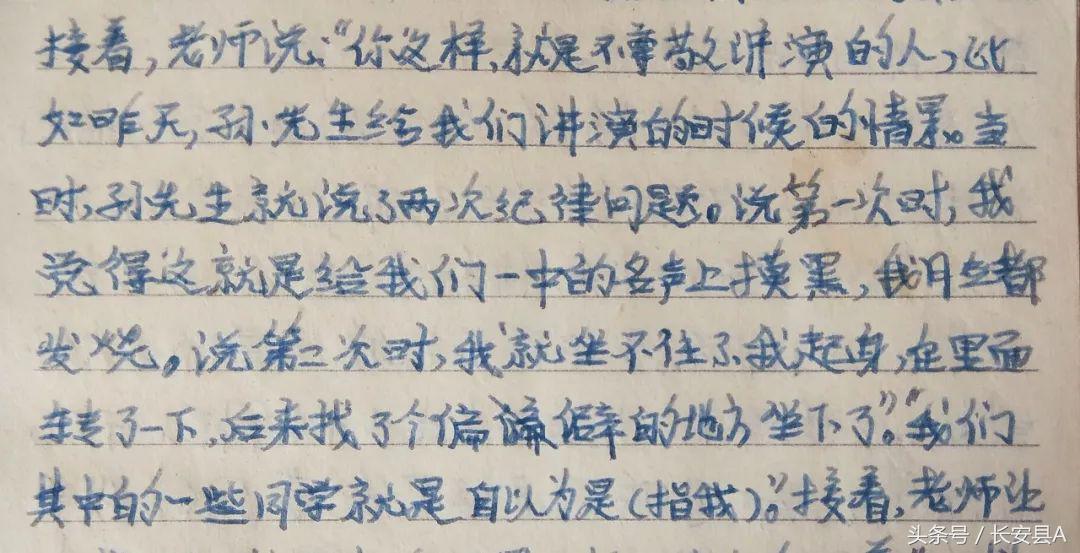 接着,老师说:“你这样,就是不尊敬讲演的人,比
如昨天,孙先生给我们讲演的时候的情景。当
时,孙先生就说了两次纪律问题。说第一次时,我
觉得这就是给我们一中的名声上摸黑,我脸都
发烧。说第二次时,我就坐不住了,我起身,在里面
转了一下,后来找了个偏僻的地方坐下了”。“我们
其中的一些同学就是自以为是(指我)。”接着,老师让
头条号/长安县A